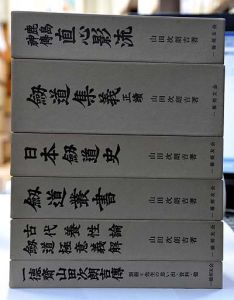 鹿島神傳 直心影流 山田次朗吉著 一橋剣友会
劔道集義 正續 山田次朗吉著 一橋剣友会
日本劔道史 山田次朗吉著 一橋剣友会
劔道叢書 山田次朗吉著 一橋剣友会
古代養性論
劔道極意義解 山田次朗吉著 一橋剣友会
一徳齋山田次朗吉傳